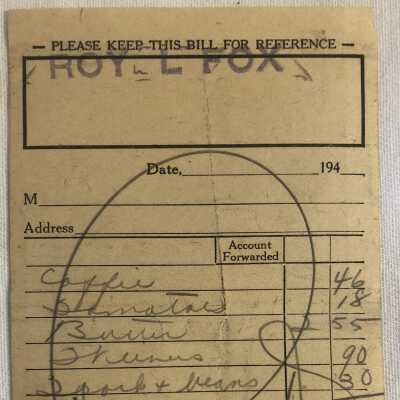 — PLEASE KEEP THIS BILL FOR REFERENCE —
ROY L FOX
Date, 194 ,
M
Address
Account
Forwarded
Coffee 46
Tomatoes 18
Butter 55
90
2 pork & beans 30